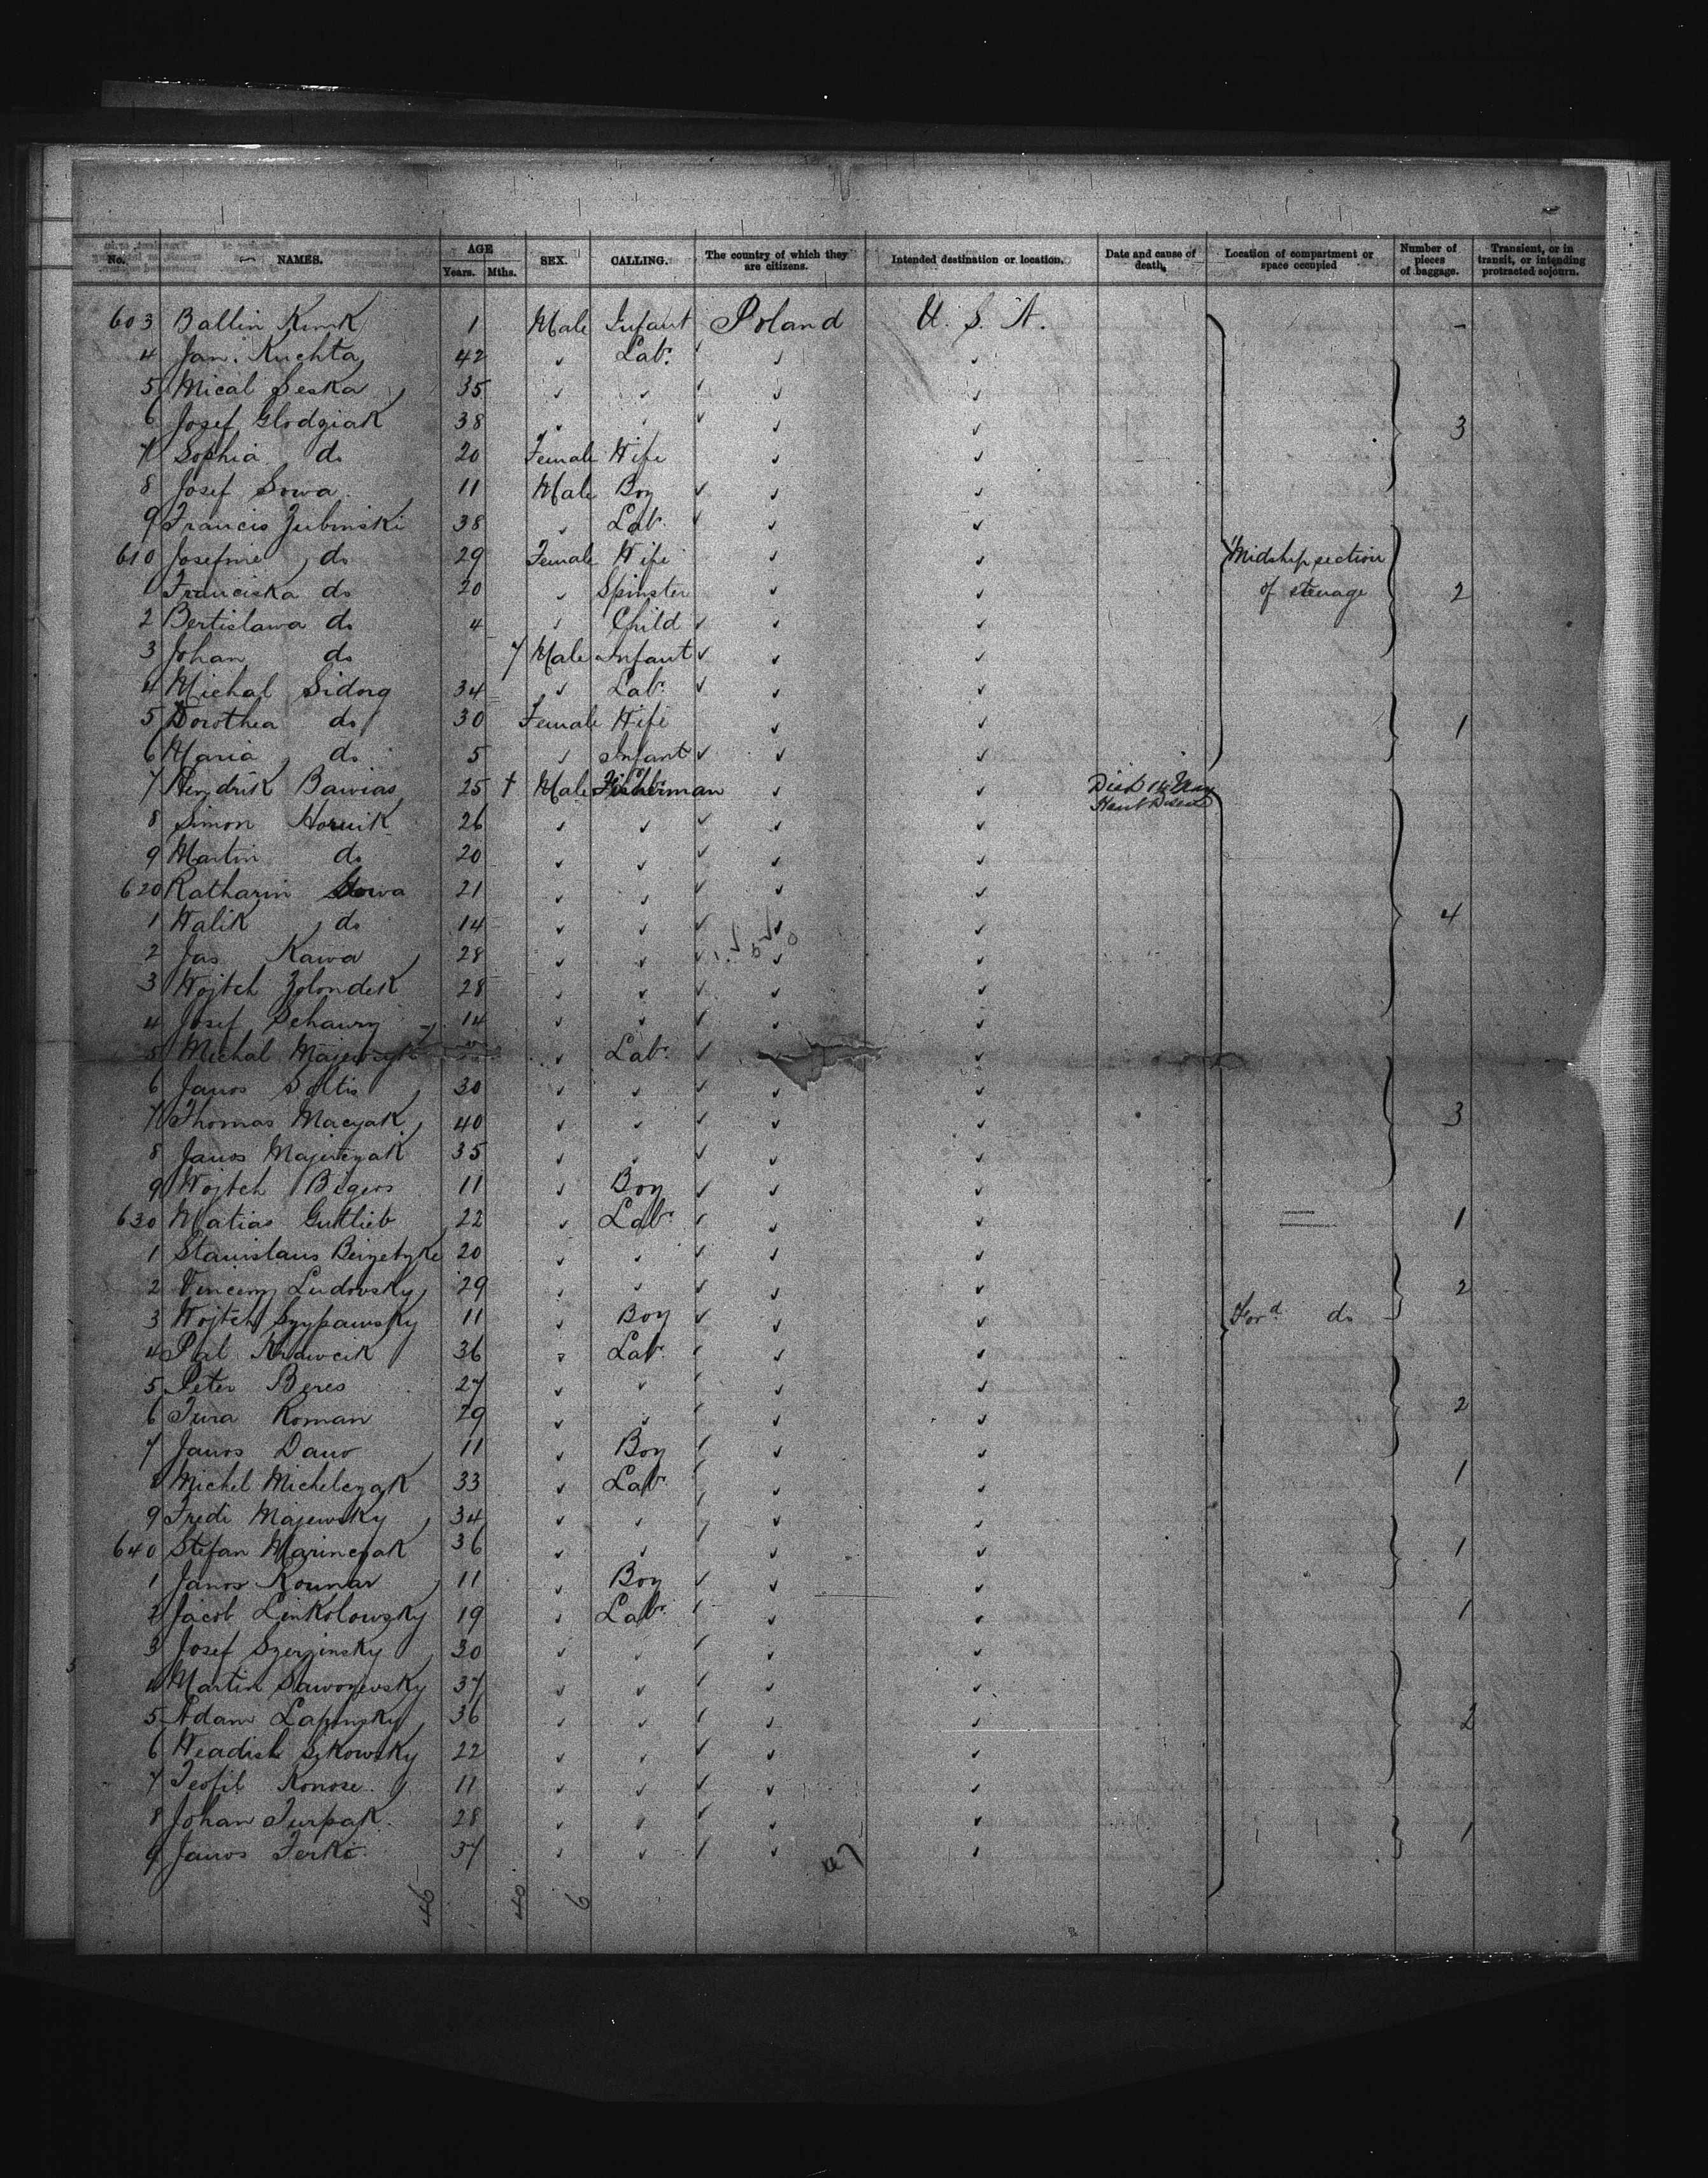 No. NAMES. AGE Years. Mths. SEX. CALLING. The country of which they are citizens. Intended destination or location. Date and cause of death. Location of compartment or space occupied Number of pieces of baggage. Transient, or in transit, or intending protracted sojourn.
603 Ballin 1 Male Infant Poland U. S. A. –
4 Jan. Kuchta 42 ✓ Lab. ✓ ✓
5 Mical Seska 35 ✓ ✓ ✓ ✓
6 Josef Glodziak 38 ✓ ✓ ✓ ✓ 3
7 Sophia do 20 Female Wife ✓ ✓
8 Josef Sowa 11 Male Boy ✓ ✓
9 Francis Zubinski 38 ✓ Lab. ✓ ✓
610 Josefine do 29 Female Wife ✓ ✓ Midship section
1 Franciska do 20 ✓ Spinster ✓ ✓ of steerage 2
2 Bertislawa do 4 ✓ Child ✓ ✓
3 Johan do 7 Male Infant ✓ ✓
4 Michal Sidorg 34 ✓ Lab. ✓ ✓
5 Dorothea do 30 Female Wife ✓ ✓ 1
6 Maria do 5 ✓ Infant ✓ ✓
7 Hendrik Bawias 25 † Male Fisherman ✓ ✓ Died 14 May
Heart Disease
8 Simon Hornik 26 ✓ ✓ ✓ ✓
9 Martin do 20 ✓ ✓ ✓ ✓
620 Katharin 21 ✓ ✓ ✓ ✓
1 Walik do 14 ✓ ✓ ✓ ✓ 4
2 Jas Kawa 28 ✓ ✓ ✓ ✓
3 Wojtch Zolondek 28 ✓ ✓ ✓ ✓
4 Josef Schawry 14 ✓ ✓ ✓ ✓
5 Michal ✓ Lab. ✓ ✓
6 Janos Soltis 30 ✓ ✓ ✓ ✓
7 Thomas Macyak 40 ✓ ✓ ✓ ✓ 3
8 Janos 35 ✓ ✓ ✓ ✓
9 Wojtch Bigers 11 ✓ Boy ✓ ✓
630 Matias Guttlieb 22 ✓ Lab. ✓ ✓ 1
1 Stanislaus 20 ✓ ✓ ✓ ✓
2 Ludovsky 29 ✓ ✓ ✓ ✓ 2
3 Wojtch Szypawsky 11 ✓ Boy ✓ ✓ Ford do
4 Krawcik 36 ✓ Lab. ✓ ✓
5 Peter Beres 27 ✓ ✓ ✓ ✓
6 Jura Roman 29 ✓ ✓ ✓ ✓ 2
7 Janos Dano 11 ✓ Boy ✓ ✓
8 Michel Michelczak 33 ✓ Lab. ✓ ✓ 1
9 Fredi Majewsky 34 ✓ ✓ ✓ ✓
640 Stefan Marinczak 36 ✓ ✓ ✓ ✓ 1
1 Janos Kounar 11 ✓ Boy ✓ ✓
2 Jacob Linkolowsky 19 ✓ Lab. ✓ ✓ 1
3 Josef Szerzinsky 30 ✓ ✓ ✓ ✓
4 Martin 37 ✓ ✓ ✓ ✓
5 Adam Lapinsky 36 ✓ ✓ ✓ ✓ 2
6 22 ✓ ✓ ✓ ✓
7 Teofil Konose 11 ✓ ✓ ✓ ✓
8 Johan Turpak 28 ✓ ✓ ✓ ✓ 1
9 Janos Ferko 37 ✓ ✓ ✓ ✓
46 40 6